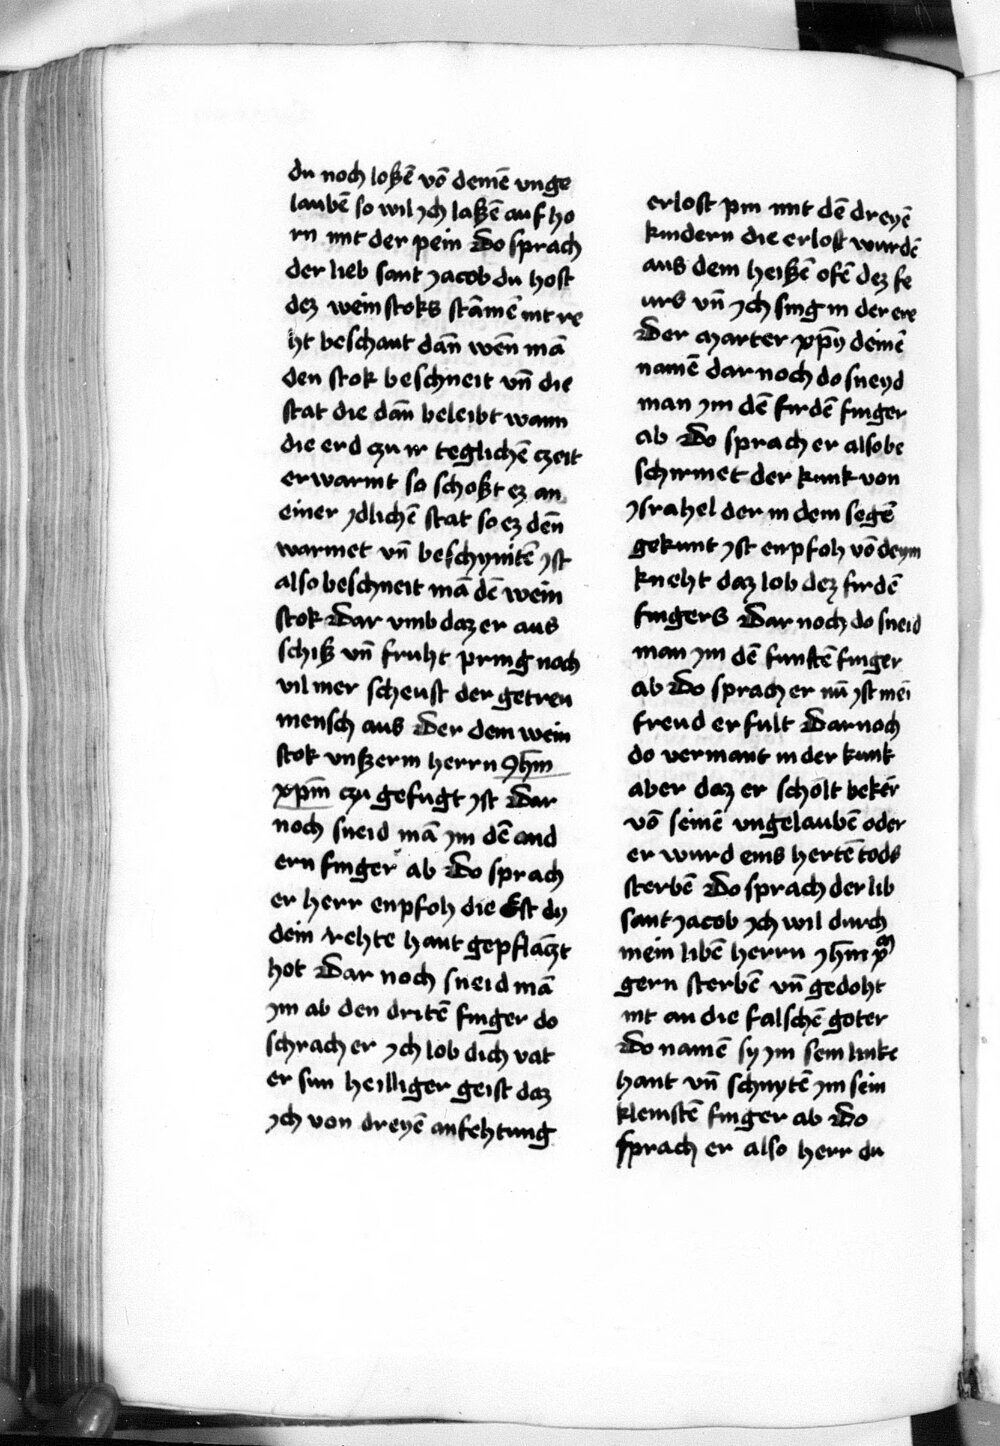 du noch loßē vō deinē vnge
laubē so wil ych laßē auf ho
rn mit der pein Do sprach
der lieb sant jacob du host
dez weinstoks stāmē nit re
ht beschaut dan̄ wen̄ mā
den stok beschneit vn̄ die
stat die dan̄ beleibt wann
die erd czu ir teglichē czeit
erwarmt so schoßt ez an
einer ydlichē stat so ez den̄
warmet vn̄ beschnitē yst
also beschneit mā dē wein
stok Dar vmb daz er aus
schiß vn̄ fruht pring noch
vil mer scheust der getreu
mensch aus Der dem wein
stok vnßerm herrn Jhm̄
xp̄m czu gefugt yst Dar
noch sneid mā ym dē and
ern finger ab Do sprach
er herr enpfoh die Est dy
dein rehte hant gepflāczt
hot Dar noch sneid mā
ym ab den dritē finger do
schrach er ych lob dich vat
er sun heilliger geist daz
ych von dreyē anfehtung
erlost pin mit dē dreyē
kindern die erlost wurdē
aus dem heißē ofē dez fe
urs vn̄ ych sing in der ere
Der marter xp̄y deinē
namē dar noch do sneyd
man ym dē firdē finger
ab Do sprach er also be
schirmet der kunk von
ysrahel der in dem segē
gekunt yst enpfoh vō deym
kneht daz lob dez firdē
fingers Dar noch do sneid
man ym dē funftē finger
ab Do sprach er nū yst mei
freud erfult Darnoch
do vermant in der kunk
aber daz er scholt bekēr
vō seinē vngelaubē oder
er wurd eins hertē tods
sterbē Do sprach der lib
sant jacob ych wil durch
mein libē herrn yhm̄
gern sterbē vn̄ gedoht
nit an die falschē goter
Do namē sy ym sein linke
hant vn̄ schnytē ym sein
kleinstē finger ab Do
sprach er also herr du